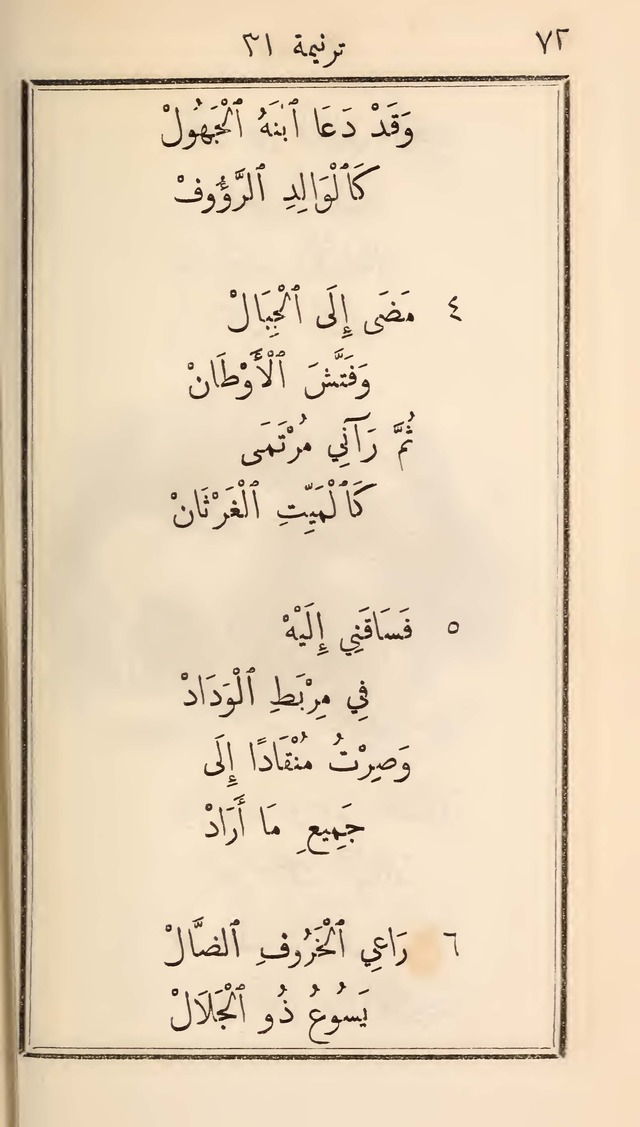 ٧٢
ترنيمة ٣١
وَقَدْ دَعَا ٱبْنَهُ ٱلْجَهُولْ
كَٱلْوَالِدِ ٱلرَّؤُوفْ
٤ مَضَى إِلَى ٱلْجِبَالْ
وَفَتَّشَ ٱلْأَوْطَانْ
ثُمَّ رَآنِي مُرْتَمَى
كَٱلْمَيِّتِ ٱلْغَرْثَانْ
٥ فَسَاقَنِي إِلَيْهْ
فِي مِرْبَطِ ٱلْوَدَادْ
وَصِرْتُ مُنْقَادًا إِلَى
جَمِيعِ مَا أَرَادْ
٦ رَاعِي ٱلْخَرُوفِ ٱلضَّالْ
يَسُوعُ ذُو ٱلْجَلَالْ